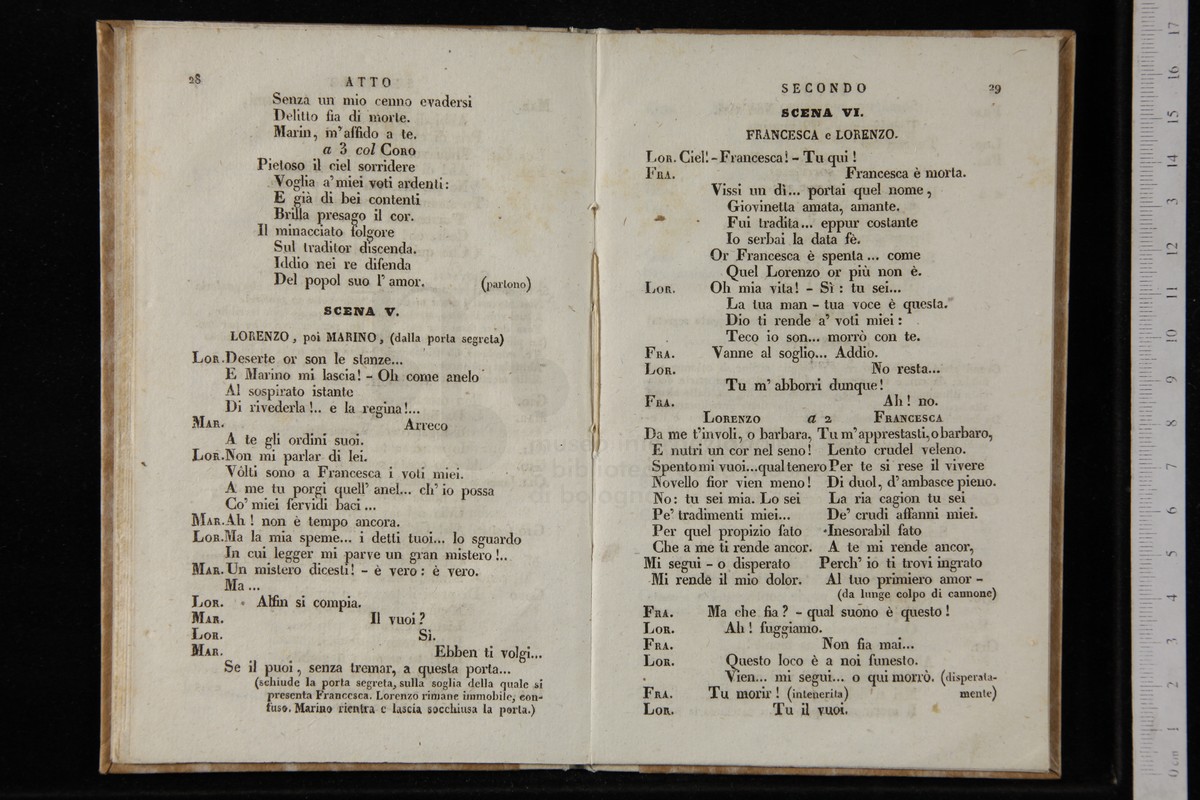 28
ATTO
Senza un mio cenno evadersi
Delitto fia di morte.
Marin, m'affido a te.
a 3 col CORO
Pietoso il ciel sorridere
Voglia a' miei voti ardenti:
E già di bei contenti
Brilla presago il cor.
Il minacciato folgore
Sul traditor discenda.
Iddio nei re difenda
Del popol suo l' amor. (partono)
SCENA V.
LORENZO, poi MARINO, (dalla porta segreta)
LOR. Deserte or son le stanze...
E Marino mi lascia! - Oh come anelo
Al sospirato istante
Di rivederla!.. e la regina!...
MAR. Arreco
A te gli ordini suoi.
LOR. Non mi parlar di lei.
Vôlti sono a Francesca i voti miei.
A me tu porgi quell' anel... ch' io possa
Co' miei fervidi baci...
MAR. Ah! non è tempo ancora.
LOR. Ma la mia speme... i detti tuoi... lo sguardo
In cui legger mi parve un gran mistero!..
MAR. Un mistero dicesti! - è vero: è vero.
Ma...
LOR. Alfin si compia.
MAR. Il vuoi?
LOR. Si.
MAR. Ebben ti volgi...
Se il puoi, senza tremar, a questa porta...
(schiude la porta segreta, sulla soglia della quale si
presenta Francesca. Lorenzo rimane immobile, con-
fuso. Marino rientra e lascia socchiusa la porta.)
SECONDO
29
SCENA VI.
FRANCESCA e LORENZO.
LOR. Ciel! - Francesca! - Tu qui!
FRA. Francesca è morta.
Vissi un dì... portai quel nome,
Giovinetta amata, amante.
Fui tradita... eppur costante
Io serbai la data fè.
Or Francesca è spenta... come
Quel Lorenzo or più non è.
LOR. Oh mia vita! - Sì: tu sei...
La tua man - tua voce è questa.
Dio ti rende a' voti miei:
Teco io son... morrò con te.
FRA. Vanne al soglio... Addio.
LOR. No resta...
Tu m' abborri dunque!
FRA. Ah! no.
LORENZO a 2 FRANCESCA
Da me t'involi, o barbara, Tu m'apprestasti, o barbaro,
E nutri un cor nel seno! Lento crudel veleno.
Spento mi vuoi... qual tenero Per te si rese il vivere
Novello fior vien meno! Di duol, d'ambasce pieno.
No: tu sei mia. Lo sei La ria cagion tu sei
Pe' tradimenti miei... De' crudi affanni miei.
Per quel propizio fato Inesorabil fato
Che a me ti rende ancor. A te mi rende ancor,
Mi segui - o disperato Perch' io ti trovi ingrato
Mi rende il mio dolor. Al tuo primiero amor -
(da lunge colpo di cannone)
FRA. Ma che fia? - qual suono è questo!
LOR. Ah! fuggiamo.
FRA. Non fia mai...
LOR. Questo loco è a noi funesto.
Vien... mi segui... o qui morrò. (disperata-
FRA. Tu morir! (intenerita) mente)
LOR. Tu il vuoi.